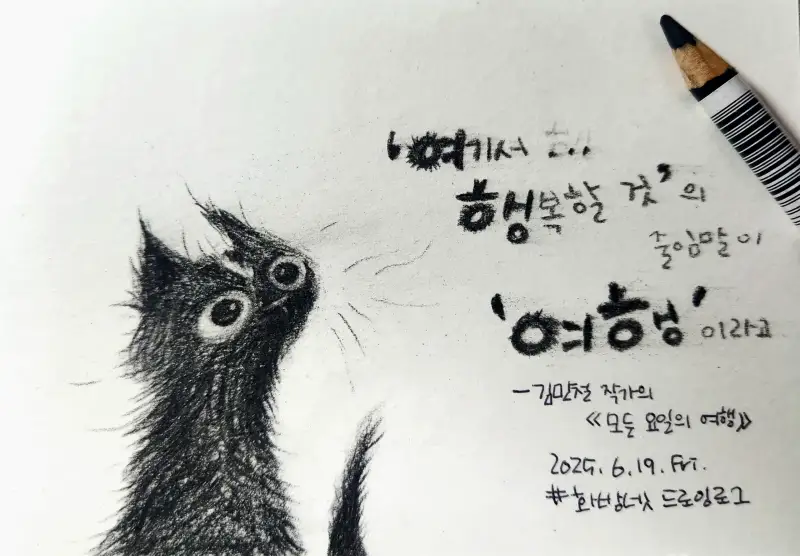 '여기서 행..
행복할 것'의
줄임말이
'여행'이라고
-김민철 작가의
《모든 요일의 여행》
2025. 6. 19. Fri.
#화방넷 드로잉로그